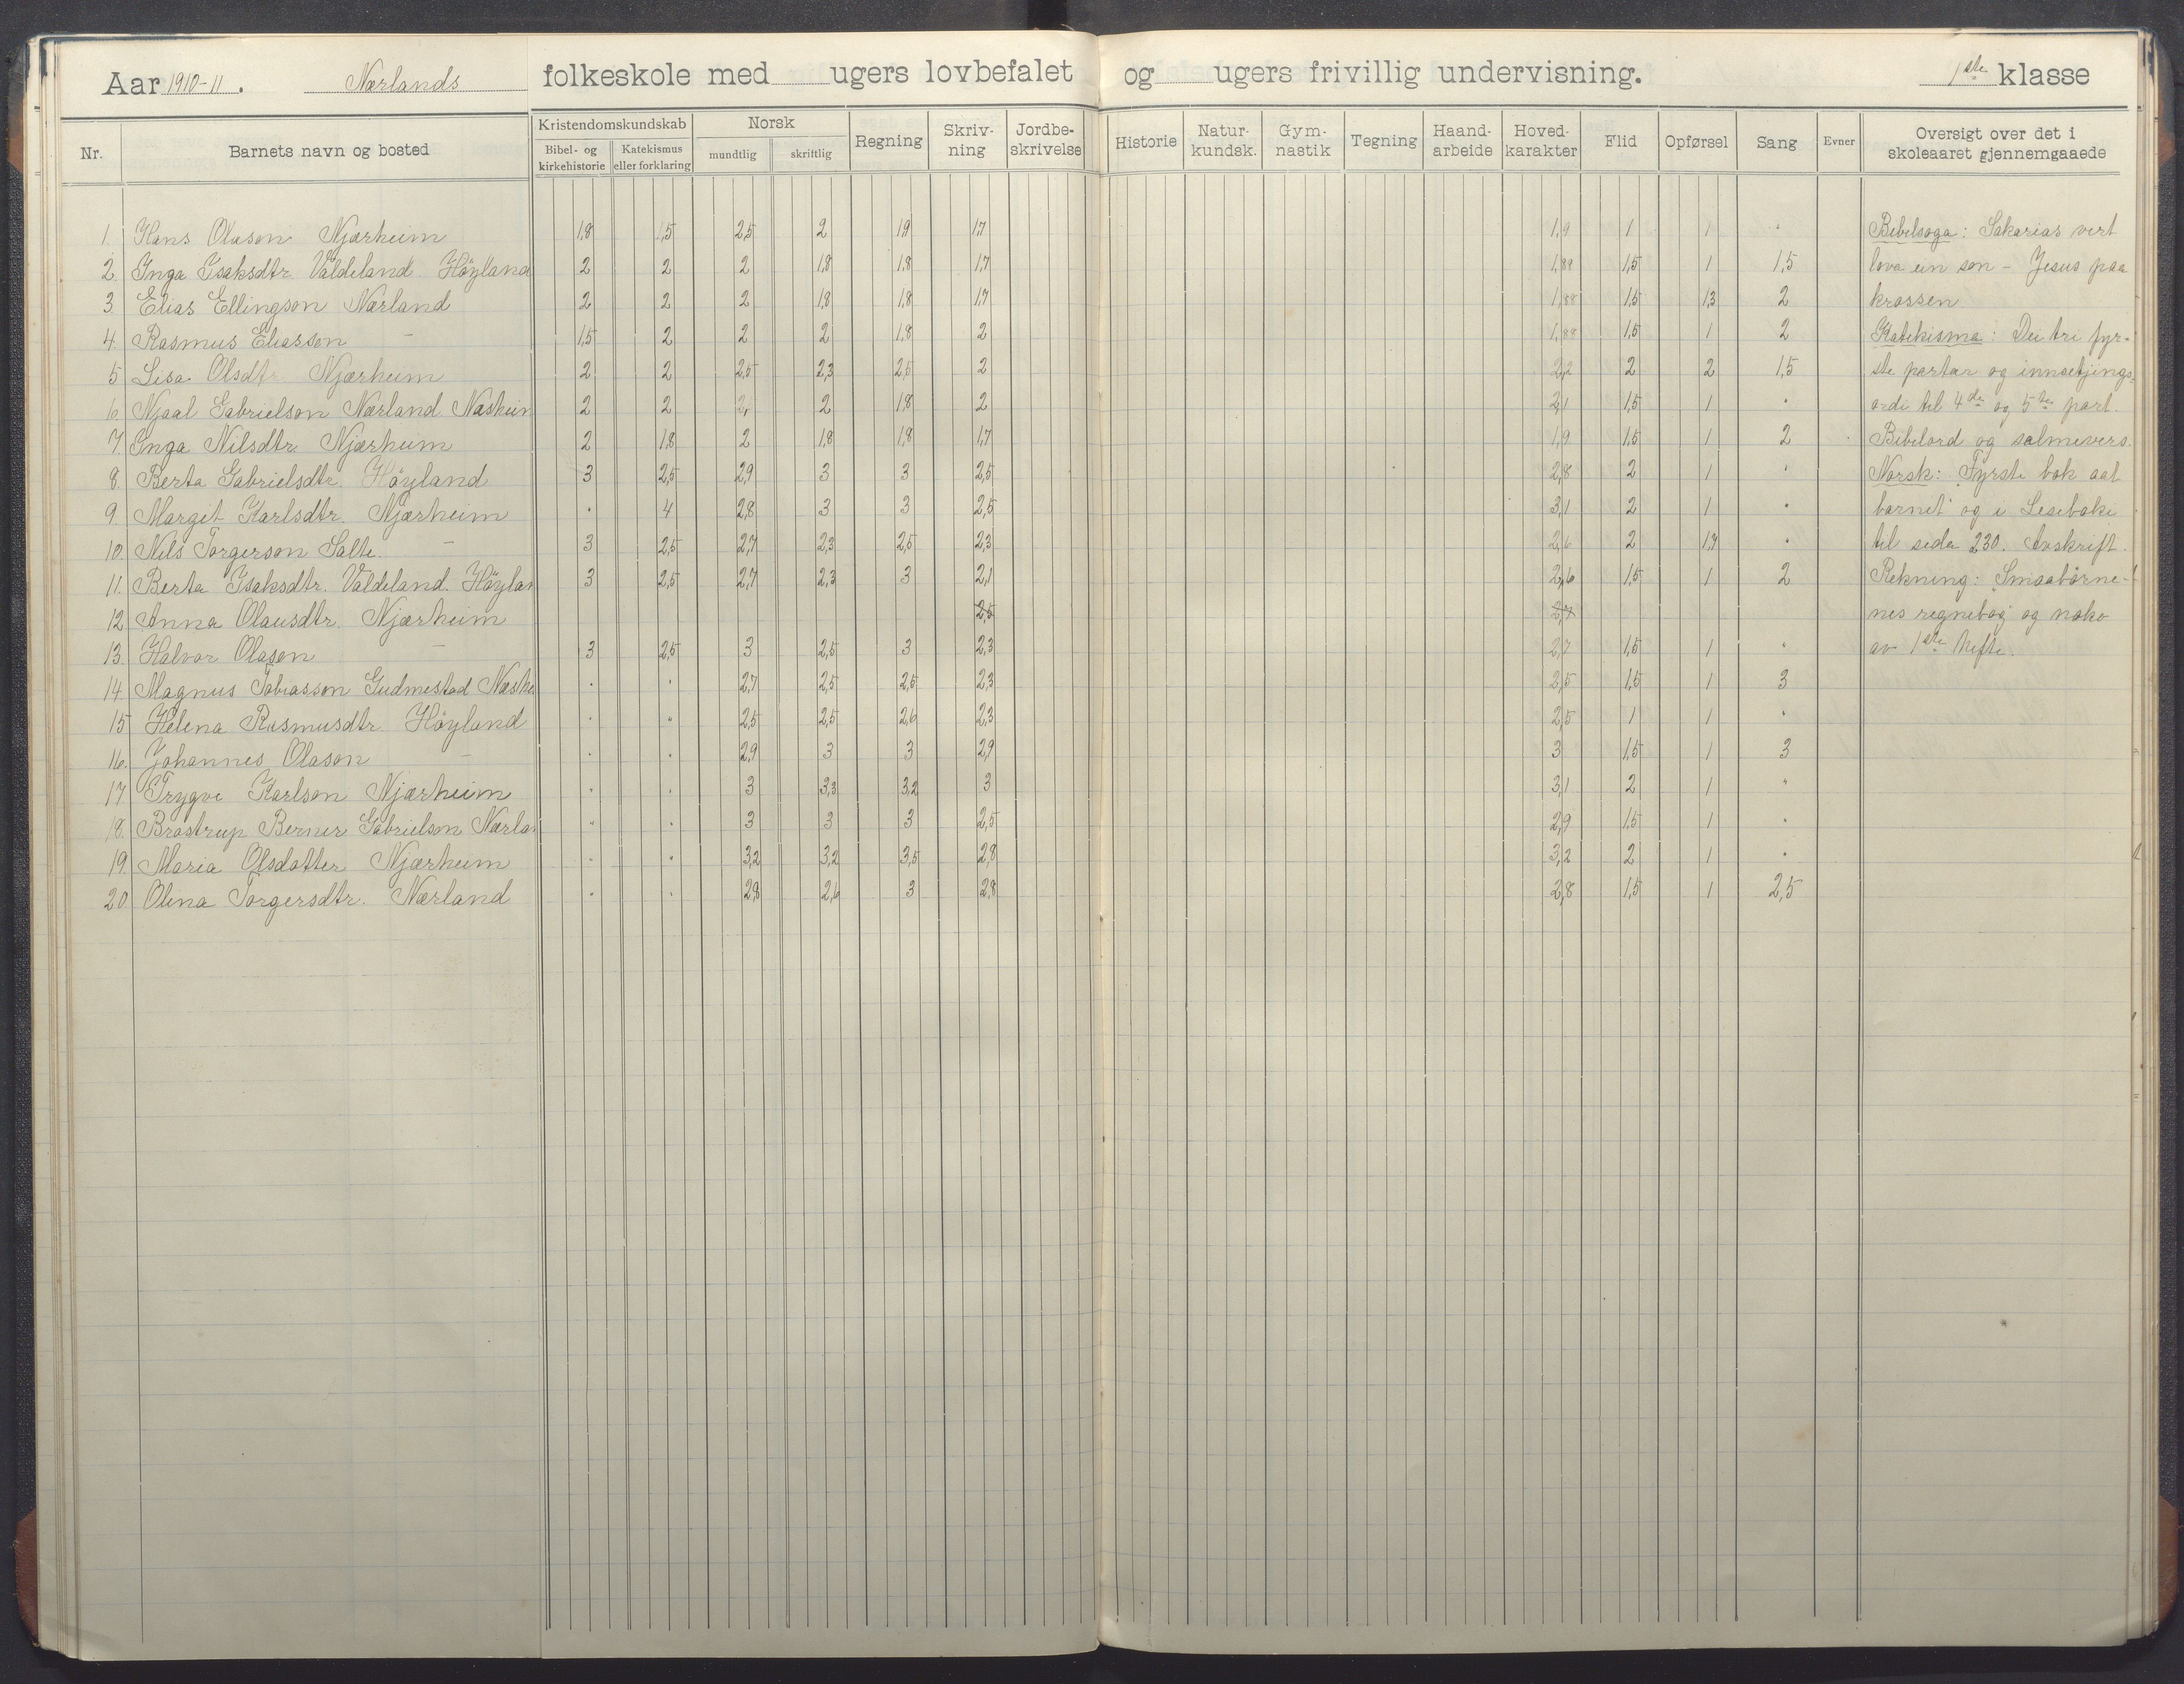 Aar 1910-11. Nærlands folkeskole med ugers lovbefalet og ugers frivillig undervisning. 1ste klasse
Nr. Barnets navn og bosted Kristendomskundskab Bibel- og kirkehistorie Katekismus eller forklaring Norsk mundtlig skriftlig Regning Skriv-ning Jordbe-skrivelse Historie Natur-kundsk. Gym-nastik Tegning Haand-arbeide Hoved-karakter Flid Opførsel Sang Evner Oversigt over det i skoleaaret gjennemgaaede
1. Hans Olason Njærheim 1,8 1,5 2,5 2 1,9 1,7 1,9 1 1 " Bibelsoga: Sakarias vert
2. Inga Isaksdtr. Valdeland Höyland 2 2 2 1,8 1,8 1,7 1,88 1,5 1 1,5 lova ein son - Jesus paa
3. Elias Ellingson Nærland 2 2 2 1,8 1,8 1,7 1,88 1,5 1,3 2 krossen
4. Rasmus Eliasson - 1,5 2 2 2 1,8 2 1,88 1,5 1 2 Katekisma: Dei tri fyr-
5 Lisa Olsdtr. Njærheim 2 2 2,5 2,3 2,5 2 2,2 2 2 1,5 ste partar og innsetjings-
6 Njaal Gabrielson Nærland Næsheim 2 2 2 1,8 2 2,1 1,5 1 " ordi til 4de og 5te part.
7. Inga Nilsdtr. Njærheim 2 1,8 2 1,8 1,8 1,7 1,9 1,5 1 2 Bibelord og salmevers.
8. Berta Gabrielsdtr. Höyland 3 2,5 2,9 3 3 2,5 2,8 2 1 " Norsk: Fyrste bok aat
9. Margit Karlsdtr. Njærheim " 4 2,8 3 3 2,5 3,1 2 1 " barnet og i Leseboki
10. Nils Torgerson Salte. - 3 2,5 2,7 2,3 2,5 2,3 2,6 2 1,7 " til sida 230. Avskrift.
11. Berta Isaksdtr. Valdeland. Höylan 3 2,5 2,7 2,3 3 2,1 2,6 1,5 1 2 Rekning: Smaabørne-
12 Anna Olausdtr. Njærheim 2,5 2,7 nes regnebog og noko
13. Halvor Olason - 3 2,5 3 2,5 3 2,3 2,7 1,5 1 " av 1ste hefte.
14. Magnus Tobiasson Gudmestad Næshe " " 2,7 2,5 2,5 2,3 2,5 1,5 1 3
15 Helena Rasmusdtr. Höyland " " 2,5 2,5 2,6 2,3 2,5 1 1 "
16. Johannes Olason - " " 2,9 3 3 2,9 3 1,5 1 3
17 Trygve Karlson Njærheim " " 3 3,3 3,2 3 3,1 2 1 "
18. Brostrup Berner Gabrielson Nærla " " 3 3 3 2,5 2,9 1,5 1 "
19. Maria Olsdatter Njærheim " " 3,2 3,2 3,5 2,8 3,2 2 1 "
20 Olina Torgersdtr. Nærland " " 2,8 2,6 3 2,8 2,8 1,5 1 2,5